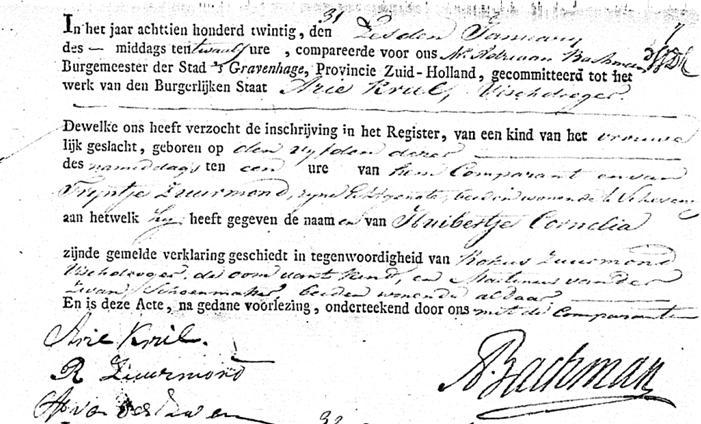 31
In het jaar achttien honderd twintig, den Zesden January
des — middags ten twaalf ure , compareerde voor ons Mr. Adriaan Bachman
Burgemeester der Stad 's Gravenhage, Provincie Zuid-Holland, gecommitteerd tot het
werk van den Burgerlijken Staat Arie Krul, Vischdrooger
Dewelke ons heeft verzocht de inschrijving in het Register, van een kind van het vrouwe
lijk geslacht, geboren op den vyfden dezer
des namiddags ten een ure van hem Comparant en van
Tryntje Zuurmond, zyne Echtgenote, beiden wonende te
aan hetwelk hy heeft gegeven de naamen van Huibertje Cornelia
zijnde gemelde verklaring geschiedt in tegenwoordigheid van Rokus Zuurmond
Vischdrooger, de oom van 't kind, en Martinus van der
Zwan, Schoenmaker beiden wonende aldaar
En is deze Acte, na gedane voorlezing, onderteekend door ons met de Comparanten
Arie Krul.
R Zuurmond
A. Bachman
32